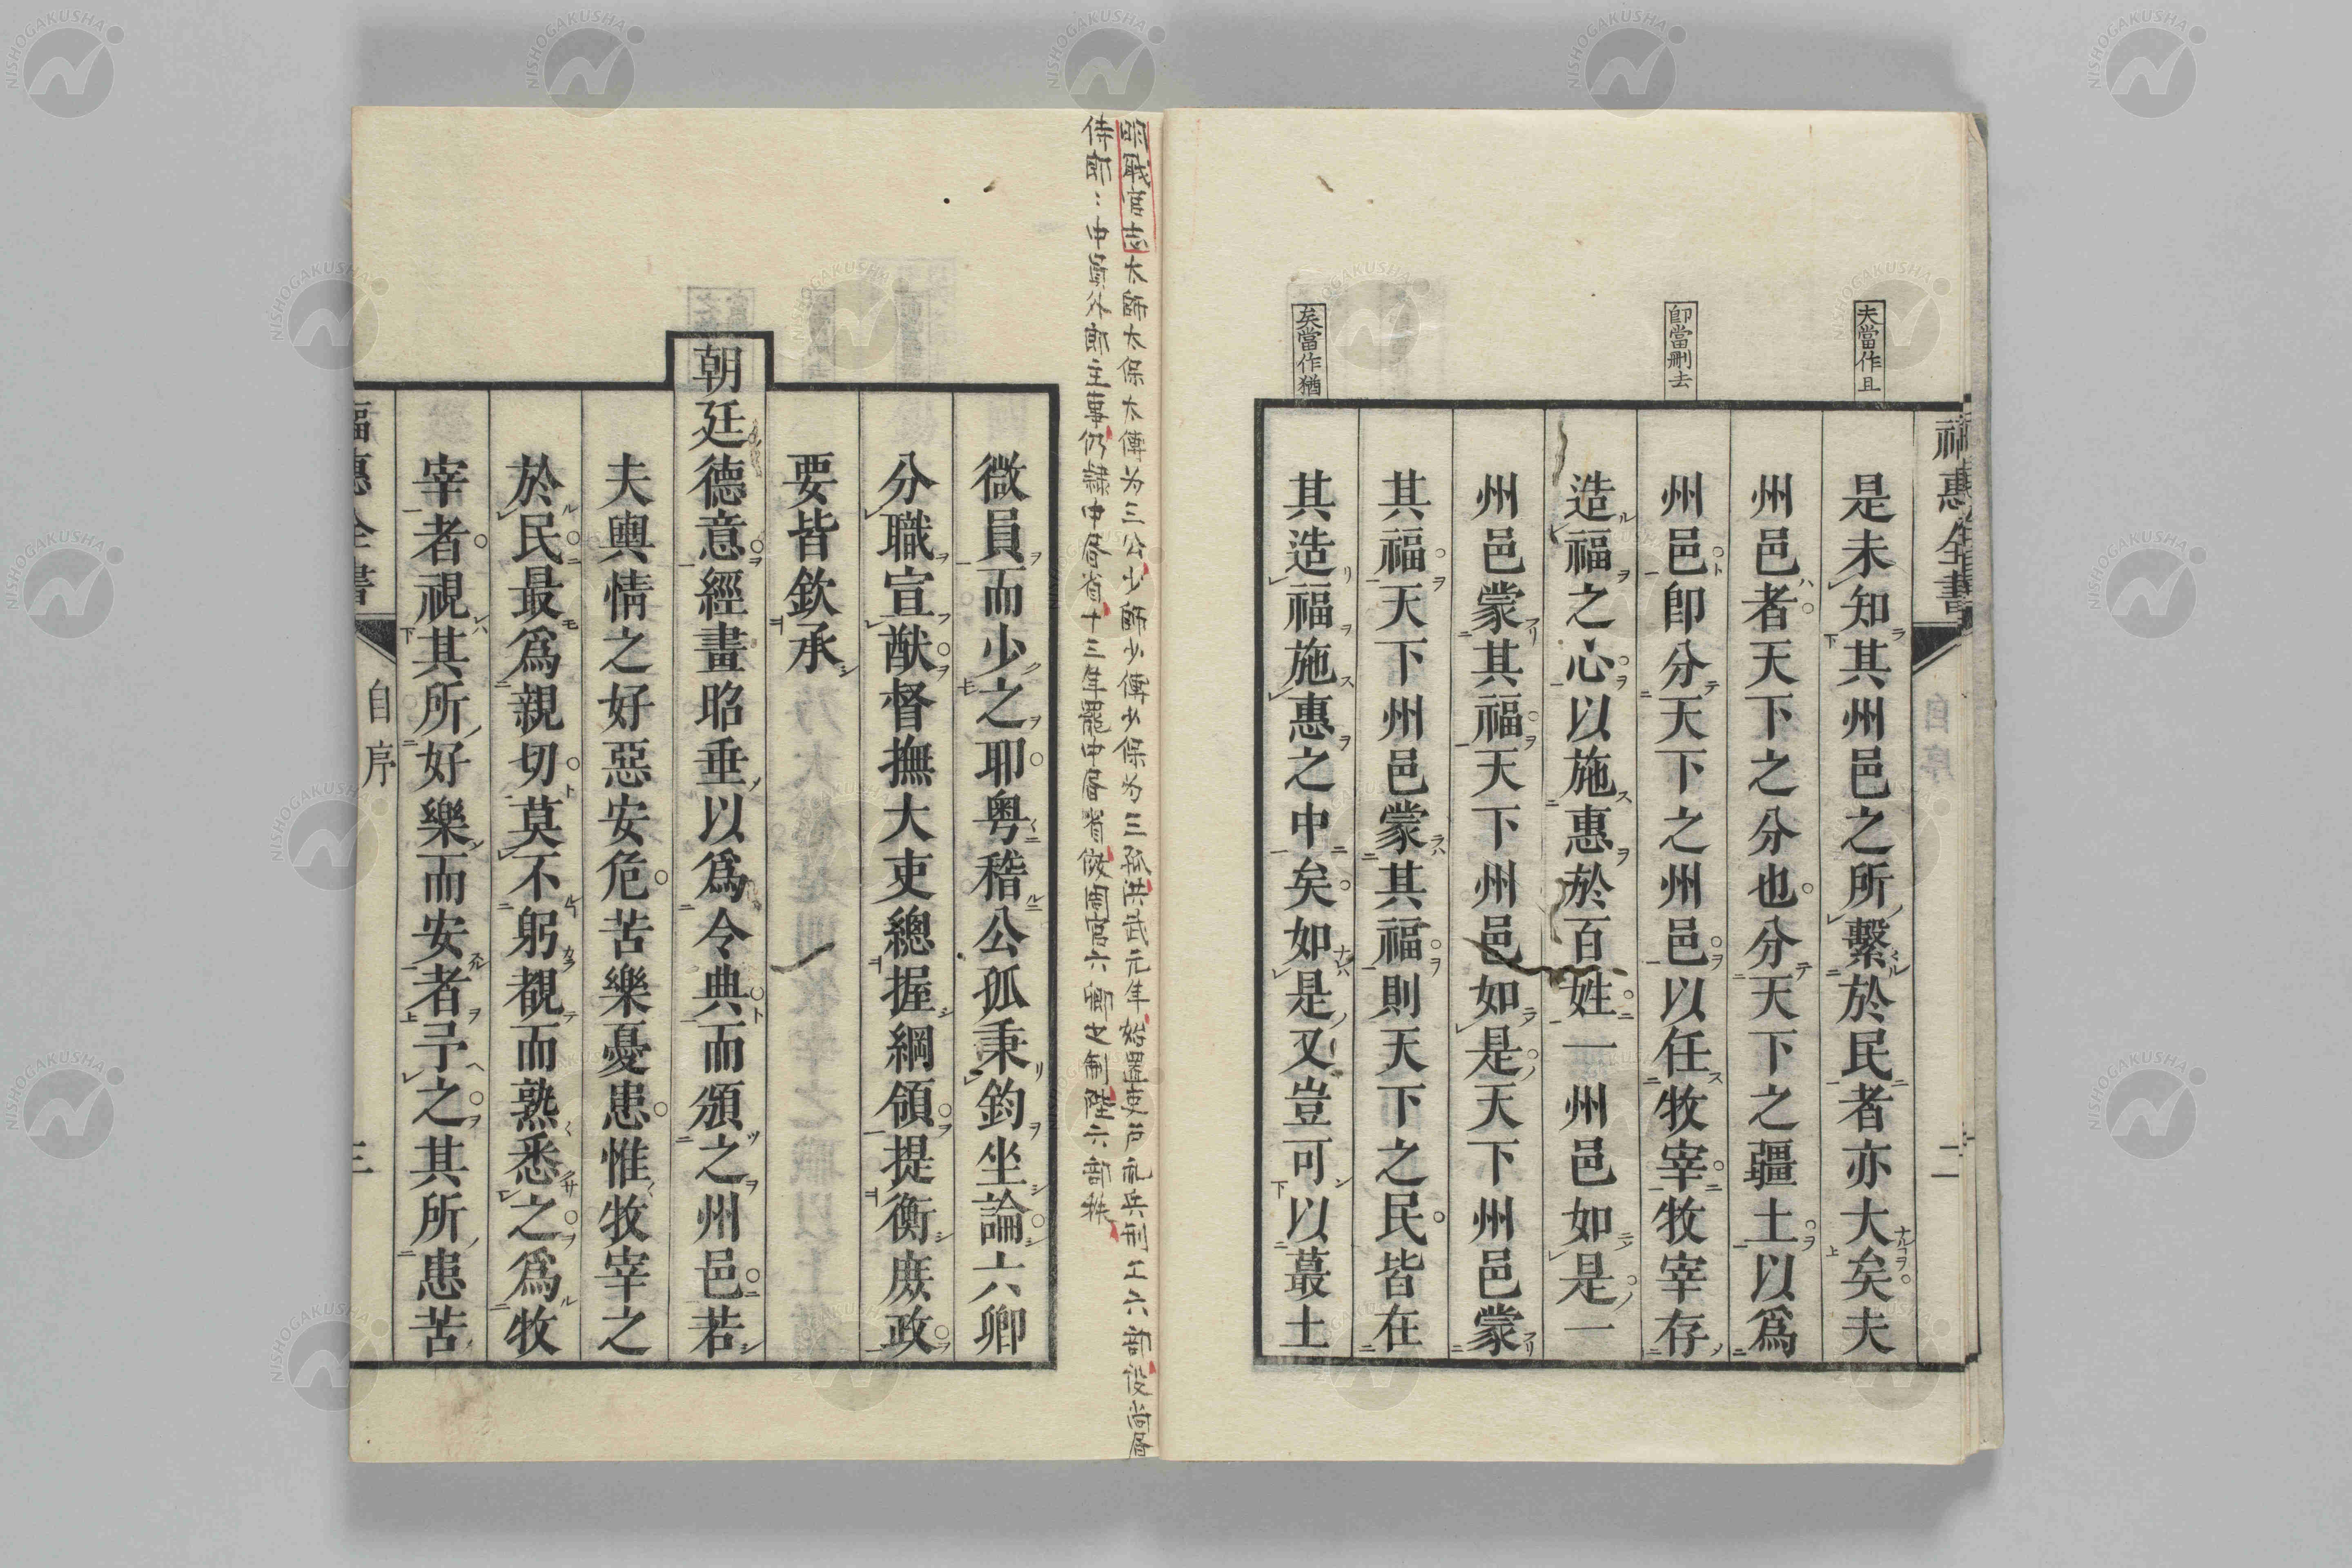 福惠全書
二
夫當作且
卽當刪去
矣當作猶
是未知其州邑之所繫於民者亦大矣夫
州邑者天下之分也分天下之疆土以爲
州邑卽分天下之州邑以任牧宰牧宰存
造福之心以施惠於百姓一州邑如是一
州邑蒙其福天下州邑如是天下州邑蒙
其福天下州邑蒙其福則天下之民皆在
其造福施惠之中矣如是又豈可以蕞土
明職官志太師太保太傅为三公少師少傅少保为三孤洪武元年始置吏戶礼兵刑工六部设尚書
侍郎〻中員外郎主事仍隸中書省十三年罷中書省倣周官六卿之制陞六部秩
微員而少之耶粤稽公孤秉鈞坐論六卿
分職宣猷督撫大吏總握綱領提衡庶政
要皆欽承
朝廷德意經畫昭垂以爲令典而頒之州邑若
夫輿情之好惡安危苦樂憂患惟牧宰之
於民最爲親切莫不躬覩而熟悉之爲牧
宰者視其所好樂而安者予之其所患苦
福惠全書
自序
三
NISHOGAKUSHA